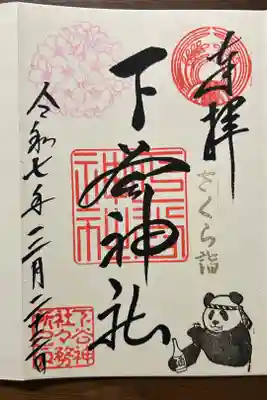 奉拝
さくら詣
下谷神社
下谷神社
令和七年三月二十日
下谷神